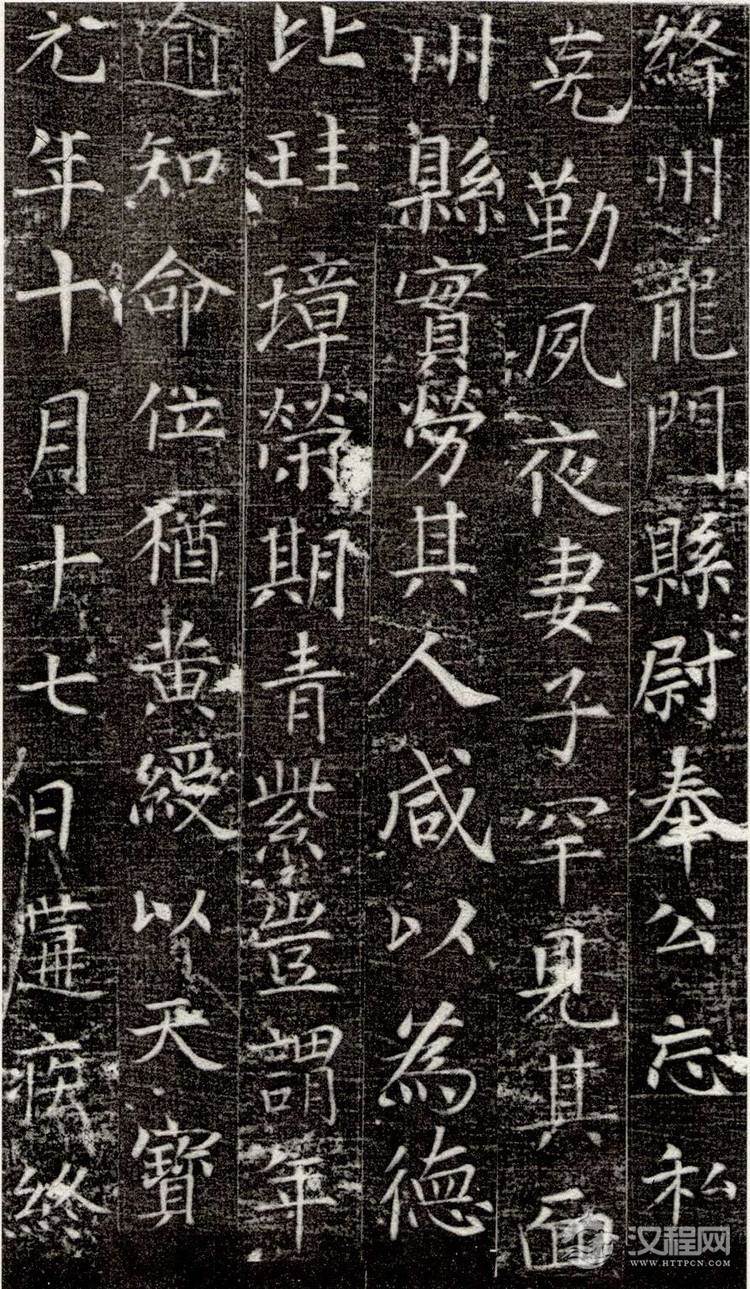 絳州龍門縣尉奉公忘私
克勤夙夜妻子罕見其面
州縣實勞其人咸以為德
比珪璋榮期青紫豈謂年
逾知命位猶黃綬以天寶
元年十月十七日遘疾終
汉程网
WWW.HTTPCN.COM